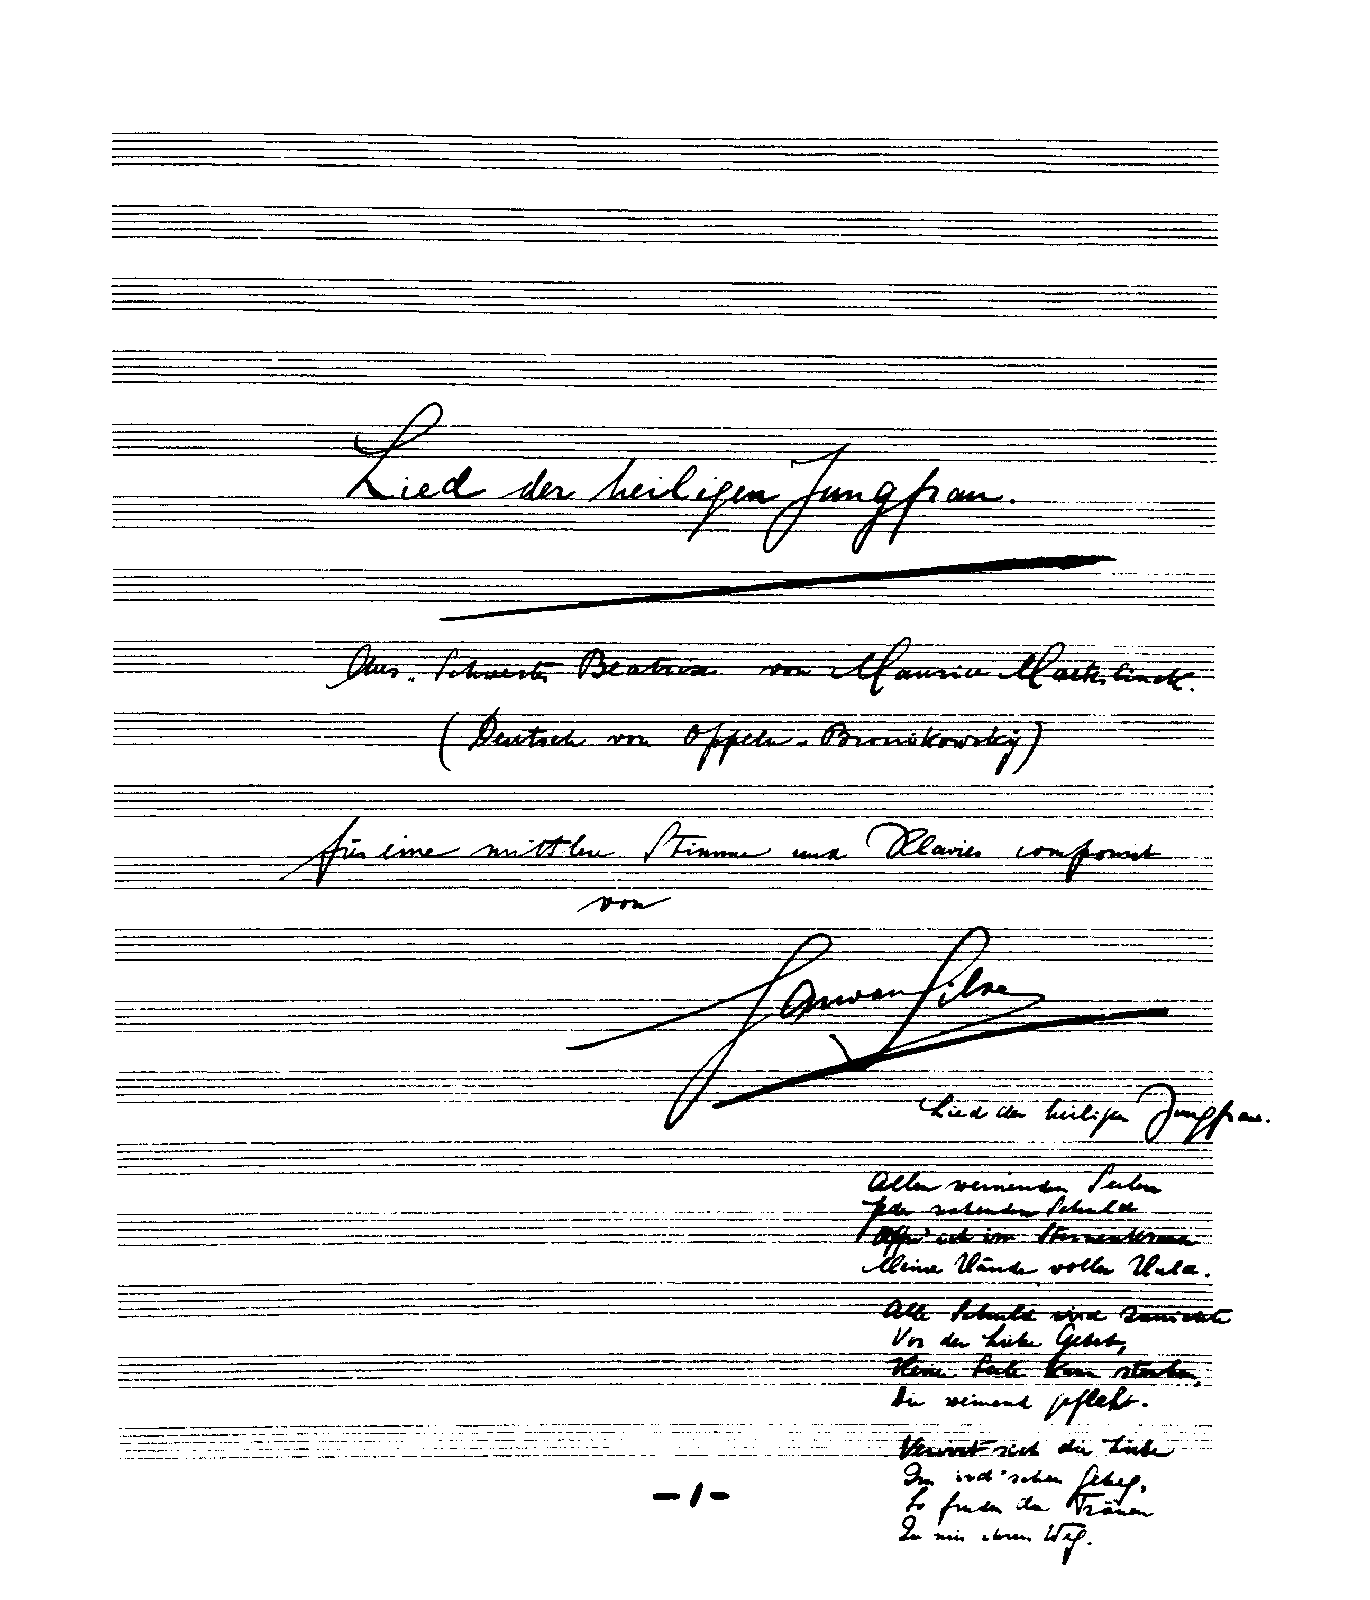 Lied der heiligen Jungfrau.
Aus "Schwester Beatrix" von Maurice Maeterlinck.
(Deutsch von Oppeln-Bronikowsky)
für eine mittlere Stimme und Klavier componiert
von
Lied der heiligen Jungfrau.
Allen weinenden Seelen
Jeder nahenden Schuld
Öffn' ich im Sternenkranze
Meine Hände voller Huld.
Alle Schuld wird zunichte
Vor der Liebe Gebet,
Keine Seele kann sterben,
Die weinend gefleht.
Verirrt sich die Liebe
In ird'schem Geheg,
So finden die Tränen
Zu mir ihren Weg.
-1-